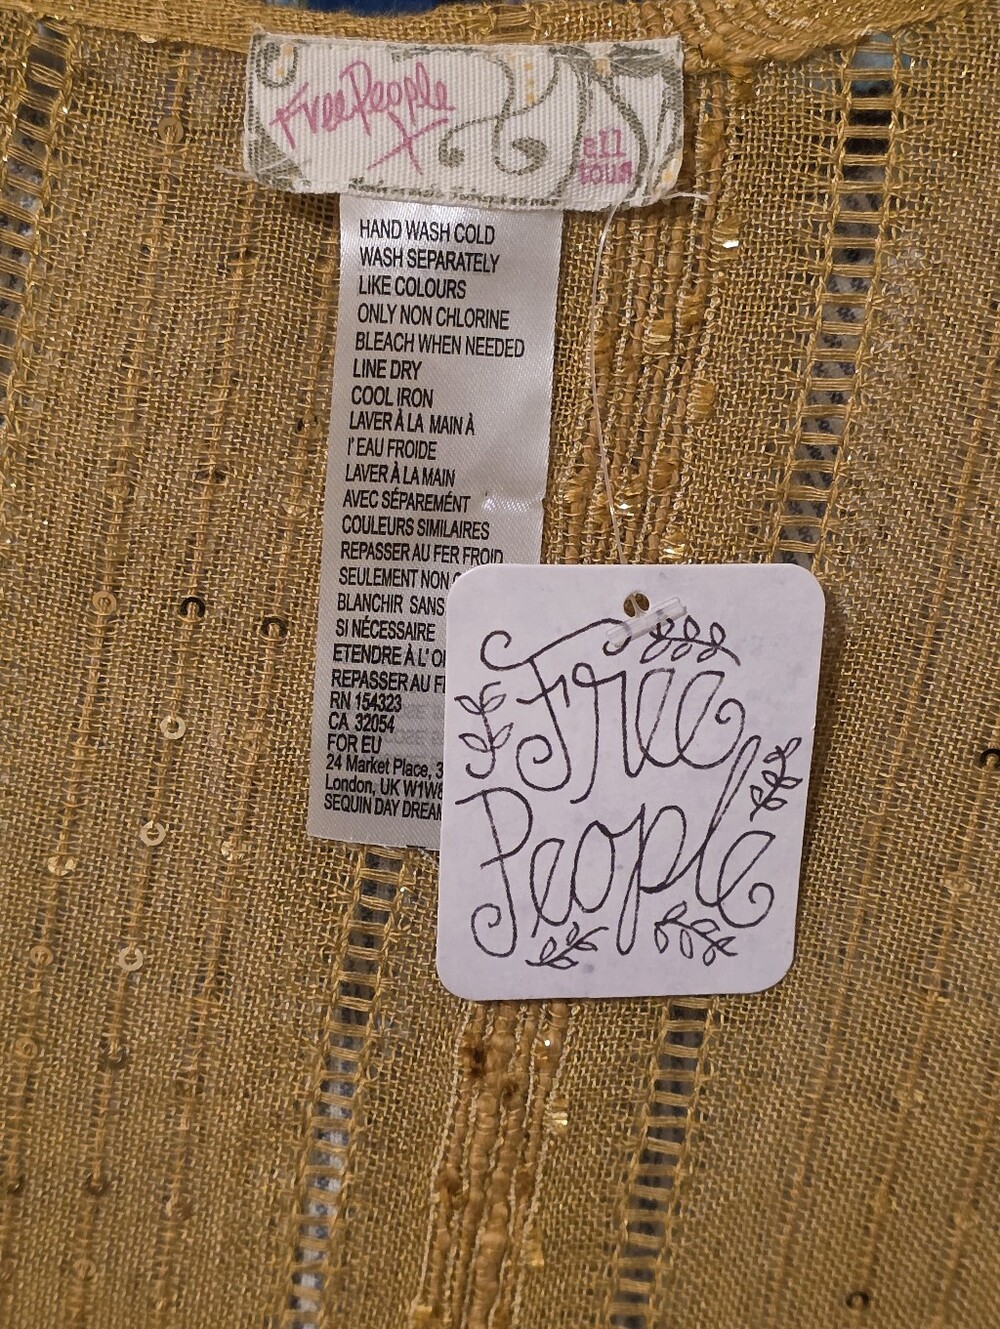 Free People
X
ell
HAND WASH COLD
WASH SEPARATELY
LIKE COLOURS
ONLY NON CHLORINE
BLEACH WHEN NEEDED
LINE DRY
COOL IRON
LAVER À LA MAIN À
l'EAU FROIDE
LAVER À LA MAIN
AVEC SÉPAREMÉNT
COULEURS SIMILAIRES
REPASSER AU FER FROID
SEULEMENT NON
BLANCHIR SANS
SI NÉCESSAIRE
ETENDRE À L'
REPASSER AU
RN 154323
CA 32054
FOR EU
24 Market Place,
London, UK
SEQUIN DAY
Free
People